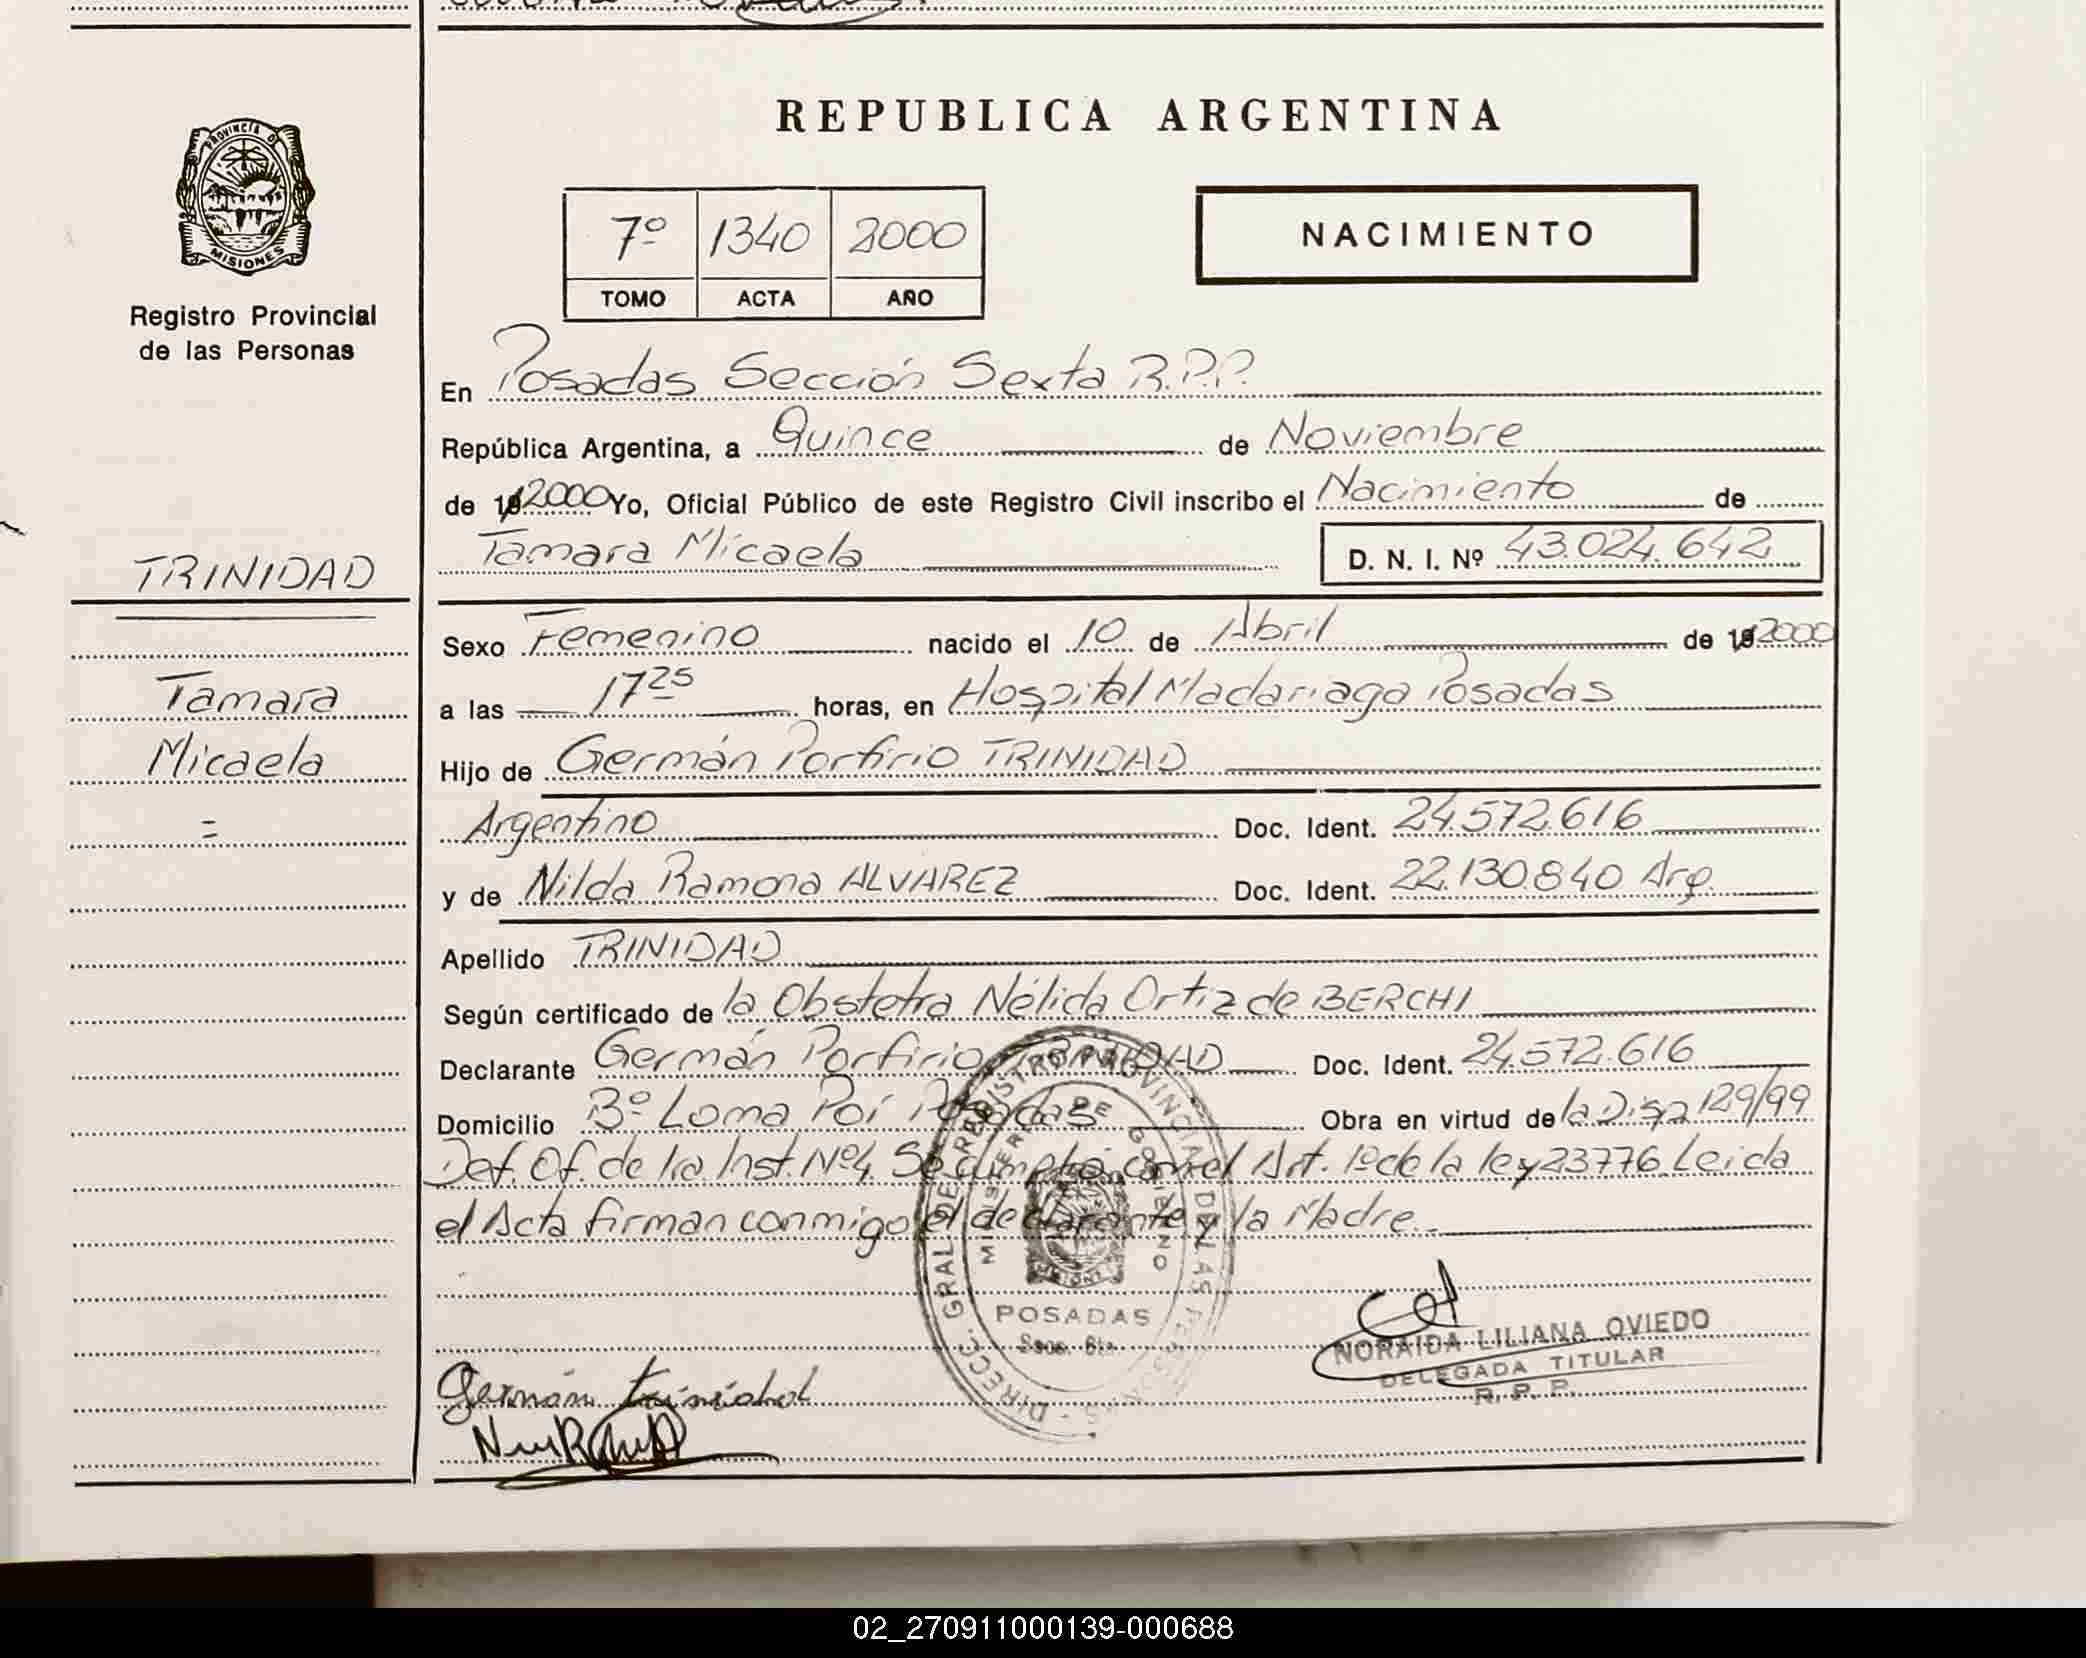 REPUBLICA ARGENTINA
PROVINCIA D
MISIONES
Registro Provincial
de las Personas
7º 1340 2000
TOMO ACTA AÑO
NACIMIENTO
En Posadas Sección Sexta R.P.P.
República Argentina, a Quince de Noviembre
de 19 2000 Yo, Oficial Público de este Registro Civil inscribo el Nacimiento de
Tamara Micaela D. N. I. Nº 43.024.642
TRINIDAD
Tamara
Micaela
=
Sexo Femenino nacido el 10 de Abril de 19 2000
a las 17 25 horas, en Hospital Madariaga Posadas
Hijo de Germán Porfirio TRINIDAD
Argentino Doc. Ident. 24.572.616
y de Nilda Ramona ALVAREZ Doc. Ident. 22.130.840 Arg.
Apellido TRINIDAD
Según certificado de la Obstetra Nélida Ortiz de BERCHI
Declarante Germán Porfirio TRINIDAD Doc. Ident. 24.572.616
Domicilio Bº Loma Poí Posadas Obra en virtud de la Disp. 129/99
Def. Of. de 1ra. Inst. Nº4. Se cumplió con el Art. 1º de la ley 23776. Leida
el Acta firman conmigo el declarante y la Madre.
DIRECC. GRAL. DE REGISTRO PROVINCIAL DE LAS PERSONAS -
MINISTERIO DE GOBIERNO
POSADAS
Secc. 6ta.
NORAIDA LILIANA OVIEDO
DELEGADA TITULAR
R. P. P.
Germán trinidad
02_270911000139-000688